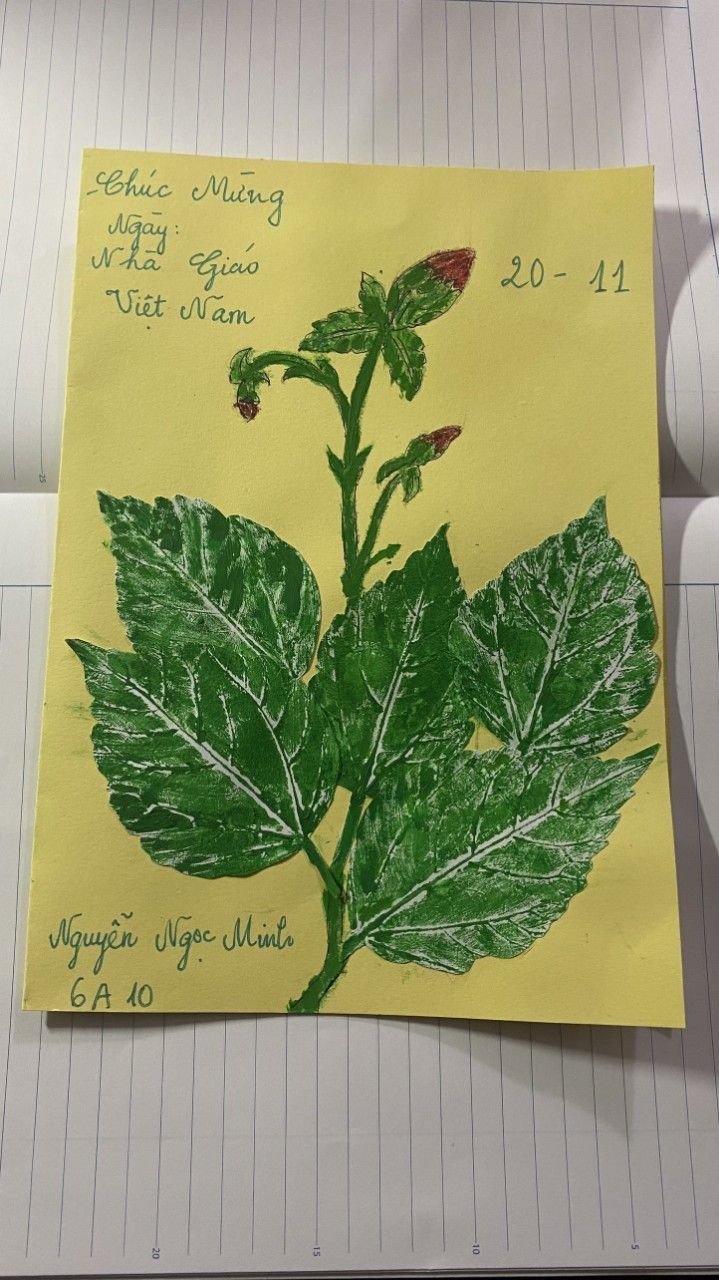 Chúc Mừng
Ngày:
Nhà Giáo
Việt Nam
20 - 11
Nguyễn Ngọc Minh
6A 10
25
20
15
10
5